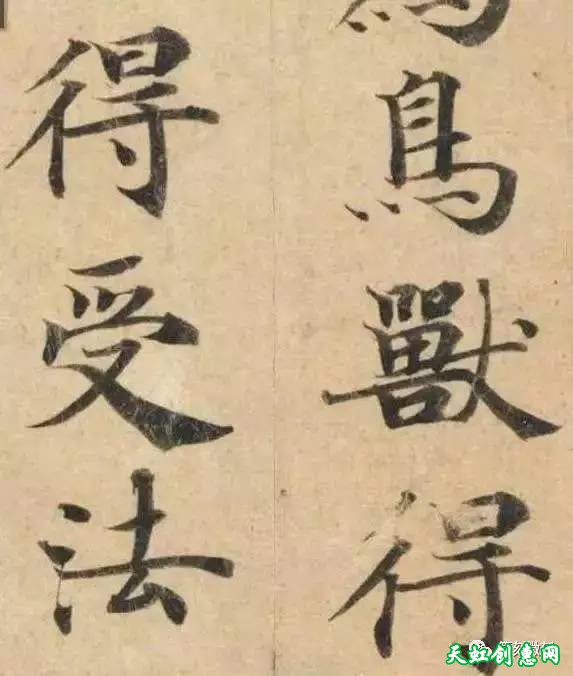 鳥獸得
得受法
天虹创意网